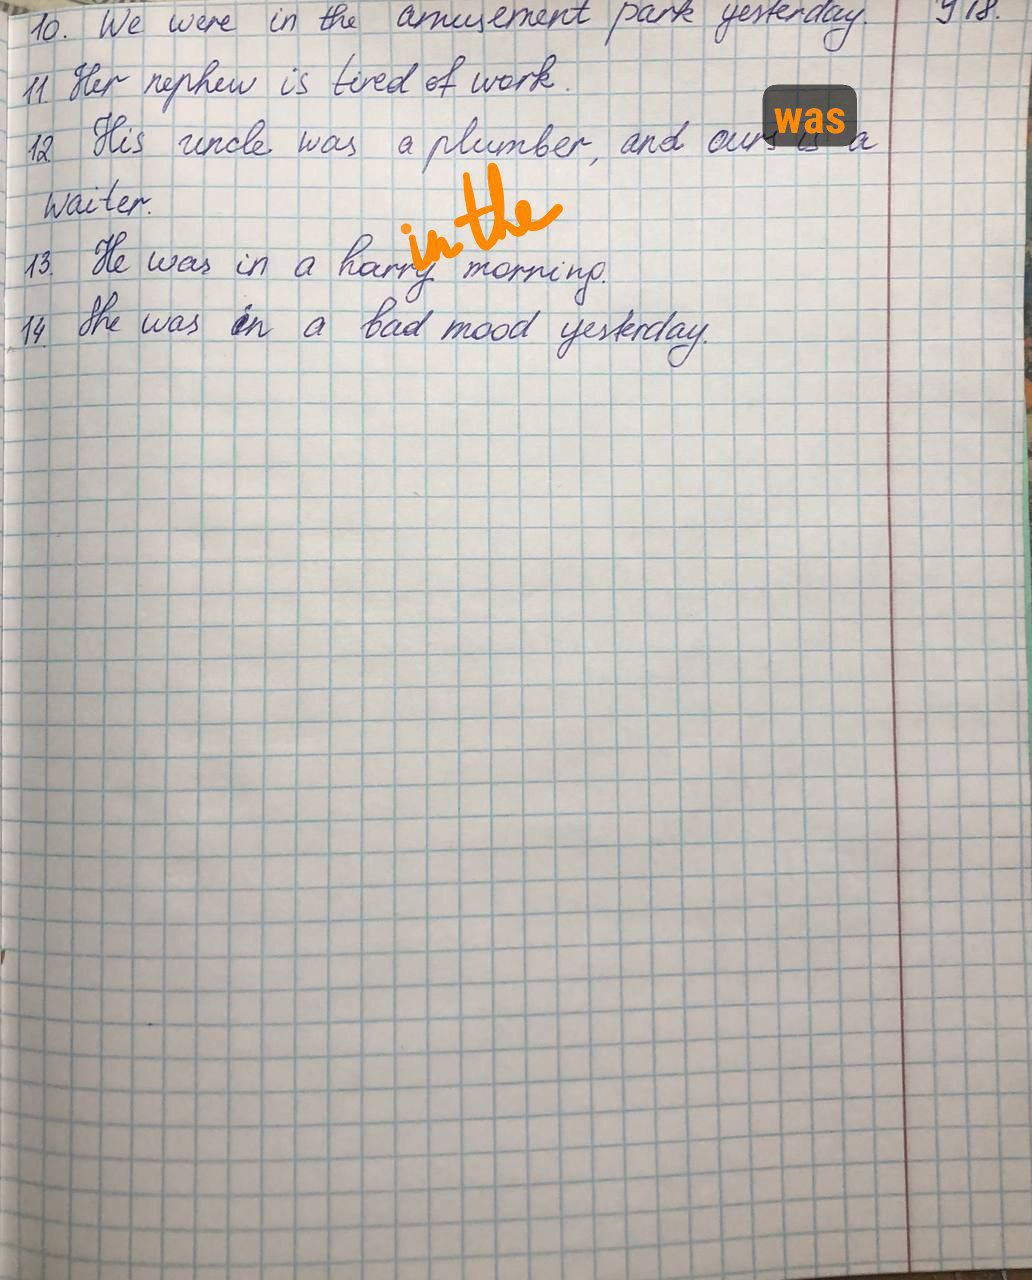 10. We were in the amusement park yesterday. y 18.
11. Her nephew is tired of work.
was
12. His uncle was a plumber, and ours is a
waiter.
in the
13. He was in a harry morning.
14. She was in a bad mood yesterday.